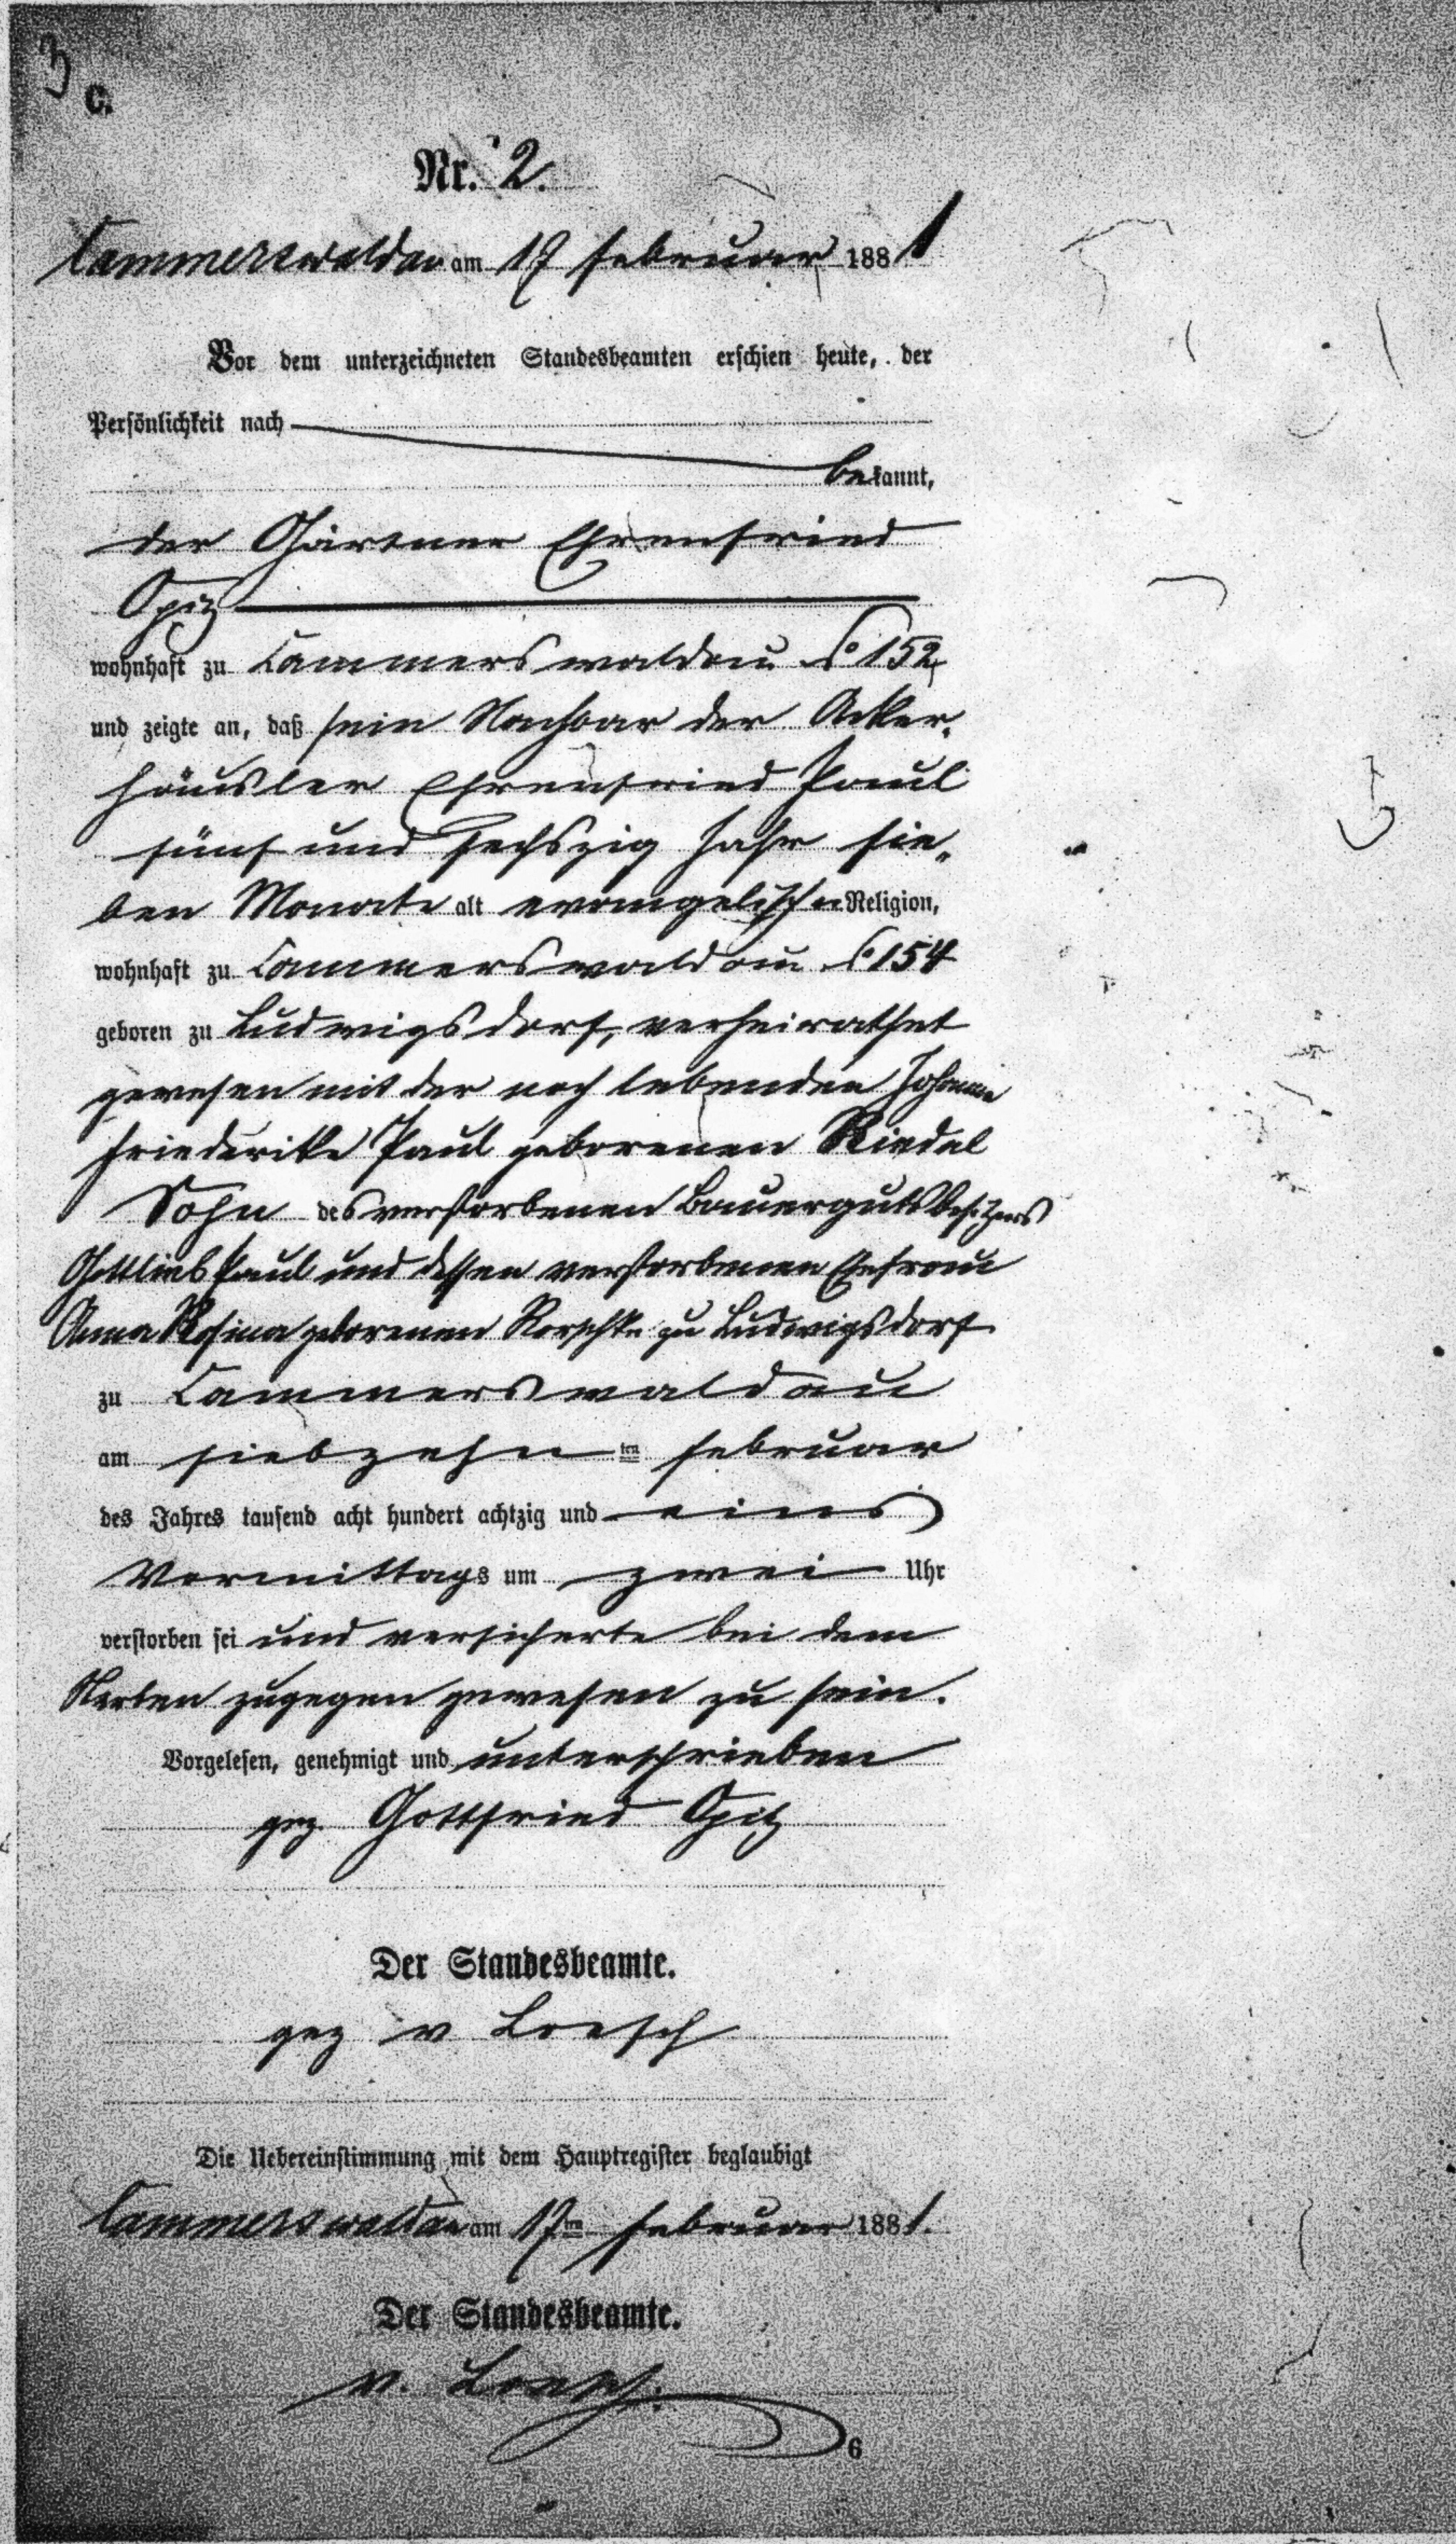 3
C.
Nr. 2.
Cammerswaldau am 17 Februar 1881
Vor dem unterzeichneten Standesbeamten erschien heute, der
Persönlichkeit nach
bekannt,
der Gärtner Ehrenfried
Opitz
wohnhaft zu Cammerswaldau No 152,
und zeigte an, daß sein Nachbar der Acker-
häusler Ehrenfried Paul
fünf und sechszig Jahr sie-
ben Monate alt evangelischer Religion,
wohnhaft zu Cammerswaldau No 154
geboren zu Ludwigsdorf, verheirathet
gewesen mit der noch lebenden Johanne
Friederike Paul geborenen Riedel
Sohn des verstorbenen Bauergutsbesitzers
Gottlieb Paul und dessen verstorbenen Ehefrau
Anna Rosina geborenen zu Ludwigsdorf
zu Cammerswaldau
am siebzehn ten Februar
des Jahres tausend acht hundert achtzig und eins
Vormittags um zwei Uhr
verstorben sei und versicherte bei dem
Sterben zugegen gewesen zu sein.
Vorgelesen, genehmigt und unterschrieben
gez. Gottfried Opitz
Der Standesbeamte.
gez v Loesch
Die Uebereinstimmung mit dem Hauptregister beglaubigt
Cammerswaldau am 17ten Februar 1881.
Der Standesbeamte.
v. Loesch.
6